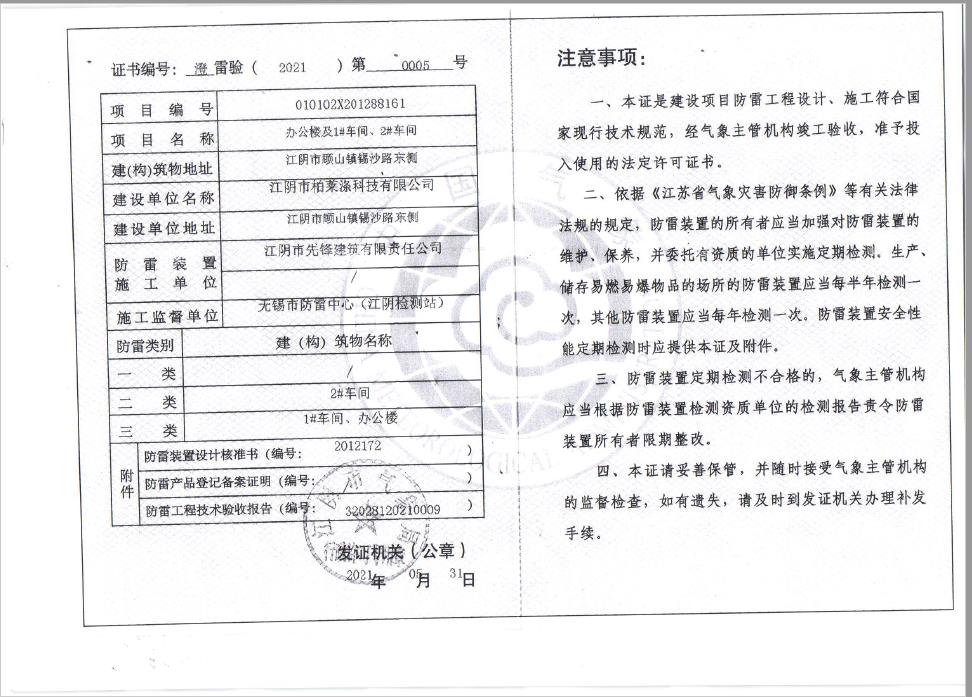 证书编号: 澄 雷验 ( 2021 ) 第 0005 号
项目编号 010102X201288161
项目名称 办公楼及1#车间、2#车间
建(构)筑物地址 江阴市顾山镇锡沙路东侧
建设单位名称 江阴市柏莱涤科技有限公司
建设单位地址 江阴市顾山镇锡沙路东侧
防雷装置施工单位 江阴市先锋建筑有限责任公司
/
施工监督单位 无锡市防雷中心（江阴检测站）
防雷类别 建（构）筑物名称
一类 /
二类 2#车间
三类 1#车间、办公楼
附件
防雷装置设计核准书（编号: 2012172 ）
防雷产品登记备案证明（编号: ）
防雷工程技术验收报告（编号: 32028120210009 ）
江阴市气象局
发证机关（公章）
2021年 05月 31日
注意事项:
一、本证是建设项目防雷工程设计、施工符合国
家现行技术规范，经气象主管机构竣工验收，准予投
入使用的法定许可证书。
二、依据《江苏省气象灾害防御条例》等有关法律
法规的规定，防雷装置的所有者应当加强对防雷装置的
维护、保养，并委托有资质的单位实施定期检测。生产、
储存易燃易爆物品的场所的防雷装置应当每半年检测一
次，其他防雷装置应当每年检测一次。防雷装置安全性
能定期检测时应提供本证及附件。
三、防雷装置定期检测不合格的，气象主管机构
应当根据防雷装置检测资质单位的检测报告责令防雷
装置所有者限期整改。
四、本证请妥善保管，并随时接受气象主管机构
的监督检查，如有遗失，请及时到发证机关办理补发
手续。